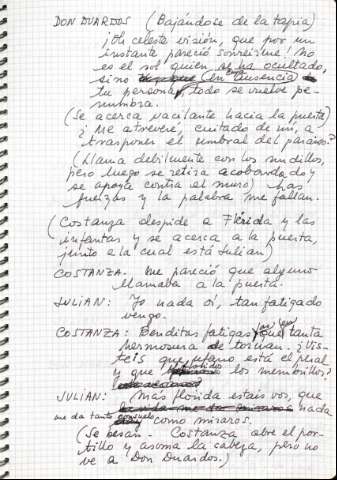 DON DUARDOS (Bajándose de la tapia)
¡Oh celeste visión, que por un
instante pareció sonreírme! No
es el sol quien se ha ocultado,
sino en ausencia
tu persona, todo se vuelve pe-
numbra.
(Se acerca vacilante hacia la puerta)
¿Me atreveré, cuitado de mí, a
trasponer el umbral del paraíso?
(Llama debilmente con los nudillos,
pero luego se retira acobardado y
se apoya contra el muro) Las
fuerzas y la palabra me fallan.
(Costanza despide a Flérida y las
infantas y se acerca a la puerta,
junto a la cual está Julian)
COSTANZA. Me pareció que alguno
llamaba a la puerta.
JULIAN: Yo nada oí, tan fatigado
vengo.
COSTANZA: Benditas fatigas que tanta
hermosura de tornan. ¿Vis-
teis que ufano está el peral
y que floridos los membrillos?
JULIAN: Más florida estais vos, que
nada
me da tanto consuelo como miraros.
(Se besan. Costanza abre el por-
tillo y asoma la cabeza, pero no
ve a Don Duardos.)